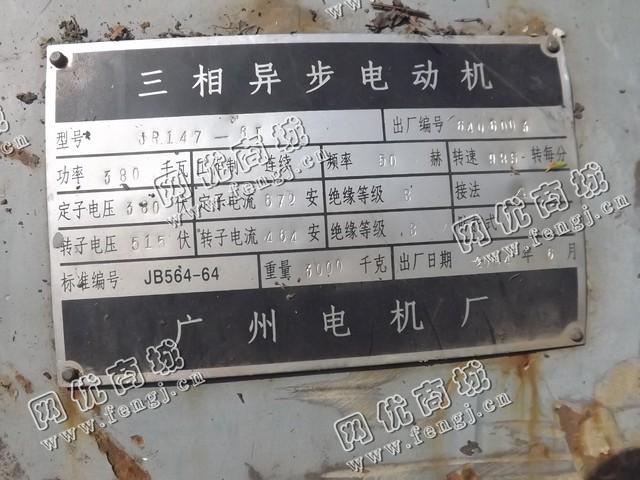 三相异步电动机
型号 JR147- 出厂编号
功率 380 千瓦 连续 频率 50 赫 转速 985 转每分
定子电压 380 伏 定子电流 672 安 绝缘等级 B 接法
转子电压 515 伏 转子电流 464 安 绝缘等级 B
标准编号 JB564-64 重量 3000 千克 出厂日期 年 6 月
广州电机厂
网优商城
www.fengj.com
网优商城
www.fengj.com
网优商城
www.fengj.com
网优商城
www.fengj.com